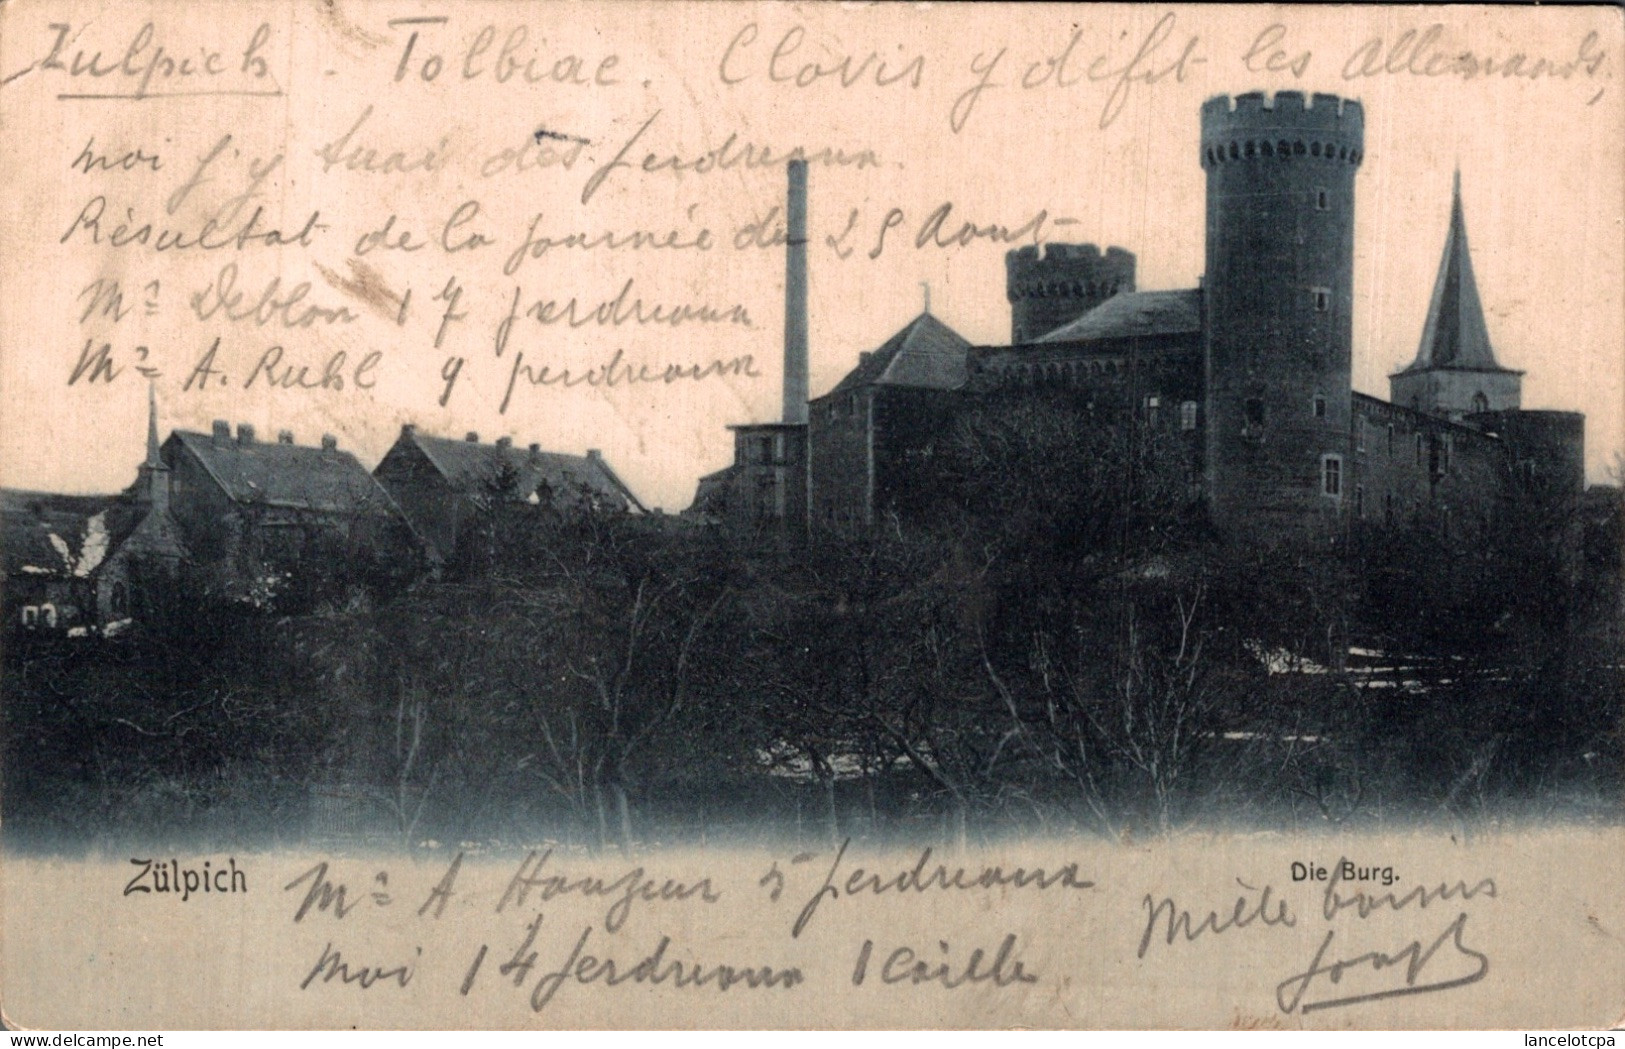 Zulpich - Tolbiac. Clovis y défit les allemands,
moi j'y tuai des perdreaux.
Résultat de la journée du 25 Aout
Mr Deblon 17 perdreaux
Mr A. Ruhl 9 perdreaux
Zülpich
Die Burg.
Mr A. 5 perdreaux
Moi 14 perdreaux 1 caille
Mille baisers
Joseph
delcampe.net
lancelotcpa